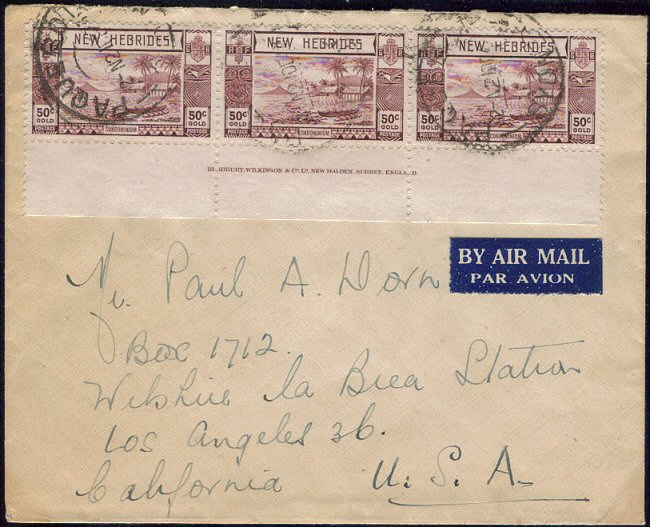 NEW HEBRIDES NEW HEBRIDES NEW HEBRIDES
RF RF RF
50c GOLD 50c 50c GOLD 50c 50c GOLD 50c
POSTAGE CONDOMINIUM POSTAGE POSTAGE CONDOMINIUM POSTAGE POSTAGE CONDOMINIUM POSTAGE
PAQUEBOT
BRADBURY, WILKINSON & Co. LD, NEW MALDEN, SURREY, ENGLAND.
BY AIR MAIL
PAR AVION
Mr. Paul A. Dorn
Box 1712.
Wilshire la Brea Station
Los Angeles 36.
California U. S. A